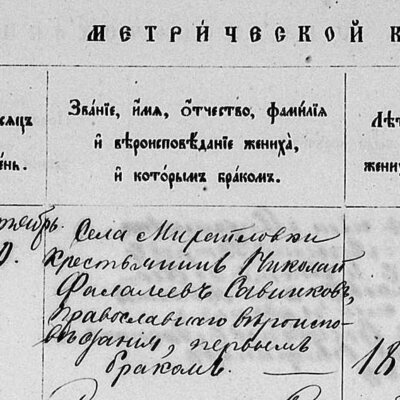 МЕТРИ́ЧЕСКОЙ К
СЯЦЪ
ЕНЬ.
ЗВА́НІЕ, И́МЯ, О́ТЧЕСТВО, ФАМИ́ЛІЯ
И҆ ВѢРОИСПОВѢ́ДАНІЕ ЖЕНИХА̀,
И҆ КОТО́РЫМЪ БРА́КОМЪ.
ЛѢТ
ЖЕНИХ
тябрь.
Села Михайловки
крестьянинъ Николай
Фалалеевъ Савинковъ,
православнаго вѣроиспо-
вѣданія, первымъ
бракомъ.
18